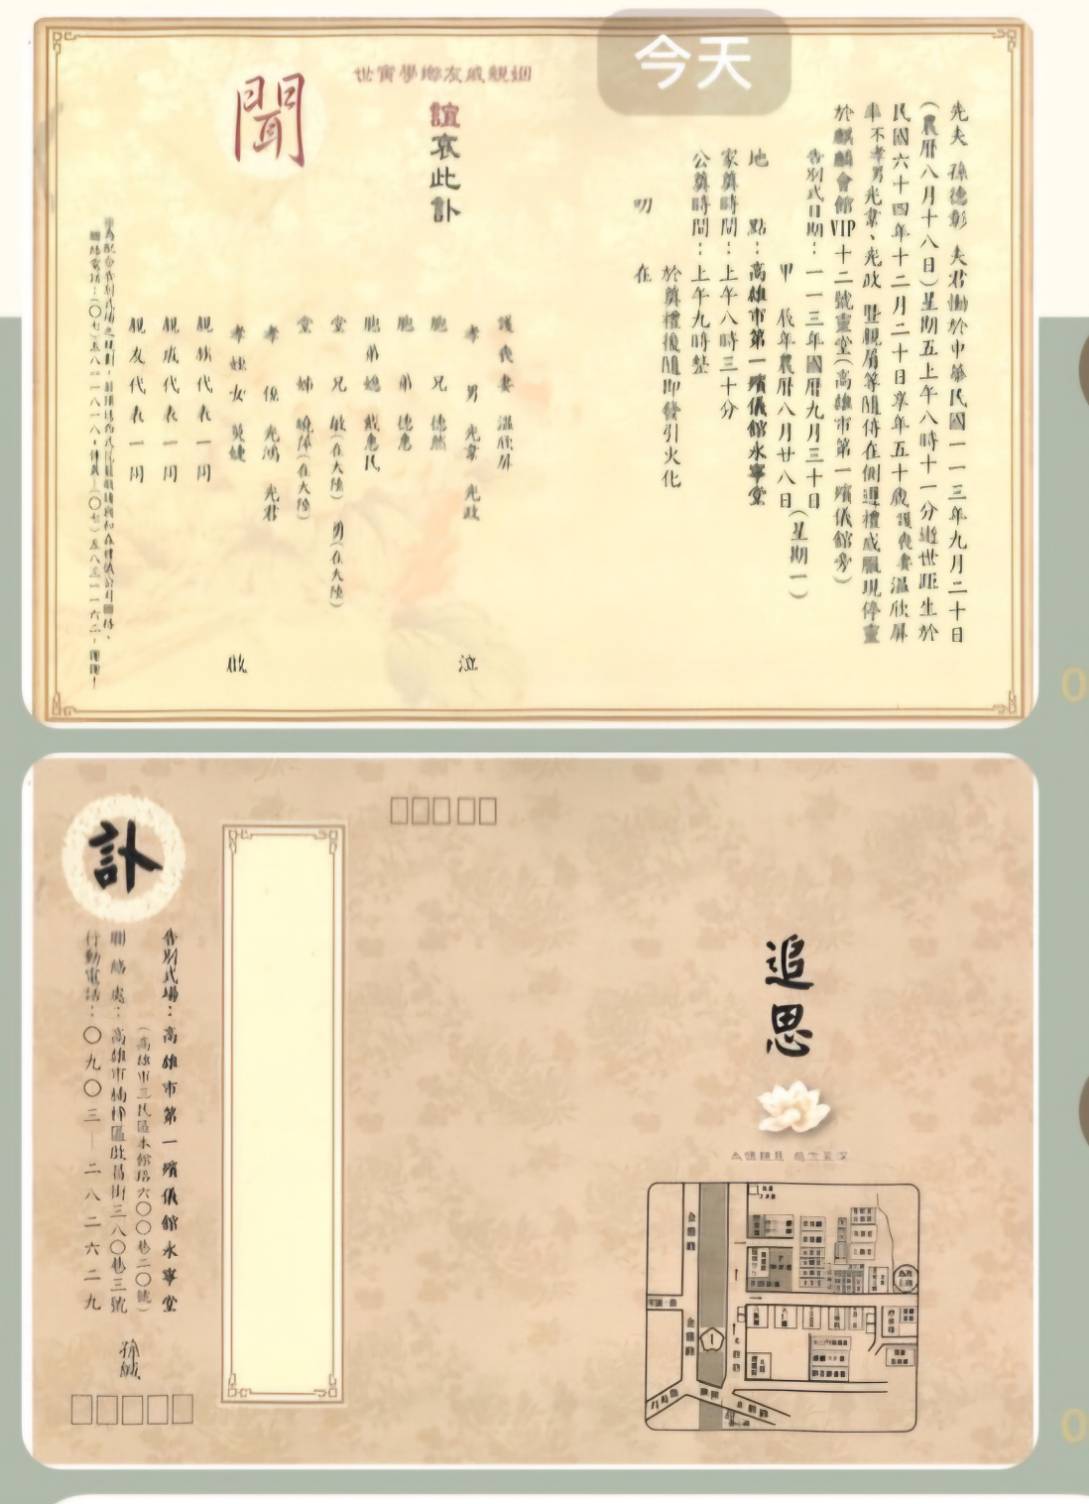 今天
先夫 孫德彰 夫君慟於中華民國一一三年九月二十日
(農曆八月十八日)星期五上午八時十一分逝世距生於
民國六十四年十二月二十日享年五十歲 護喪妻溫欣屏
率不孝男光韋、光政 暨親屬等隨侍在側遵禮成服現停靈
於麒麟會館VIP十二號靈堂(高雄市第一殯儀館旁)
告別式日期:一一三年國曆九月三十日
甲辰年農曆八月廿八日
(星期一)
地點:高雄市第一殯儀館永寧堂
家奠時間:上午八時三十分
公奠時間:上午九時整
於奠禮後隨即發引火化
叨在
世寅學鄉友戚親姻
誼哀此訃
聞
護喪妻 溫欣屏
孝男 光韋 光政
胞兄 德然
胞弟 德惠
胞弟媳 戴惠民
堂兄 敏(在大陸) 勇(在大陸)
堂姊 曉萍(在大陸)
孝侄 光鴻 光君
孝姪女 莫婕
泣
啟
親族代表一同
親戚代表一同
親友代表一同
訃
告別式場:高雄市第一殯儀館永寧堂
(高雄市三民區本館路六〇〇巷二〇號)
聯絡處:高雄市楠梓區欣昌街三八〇巷三號
行動電話:〇九〇三-二八二六二九
孫緘
追思